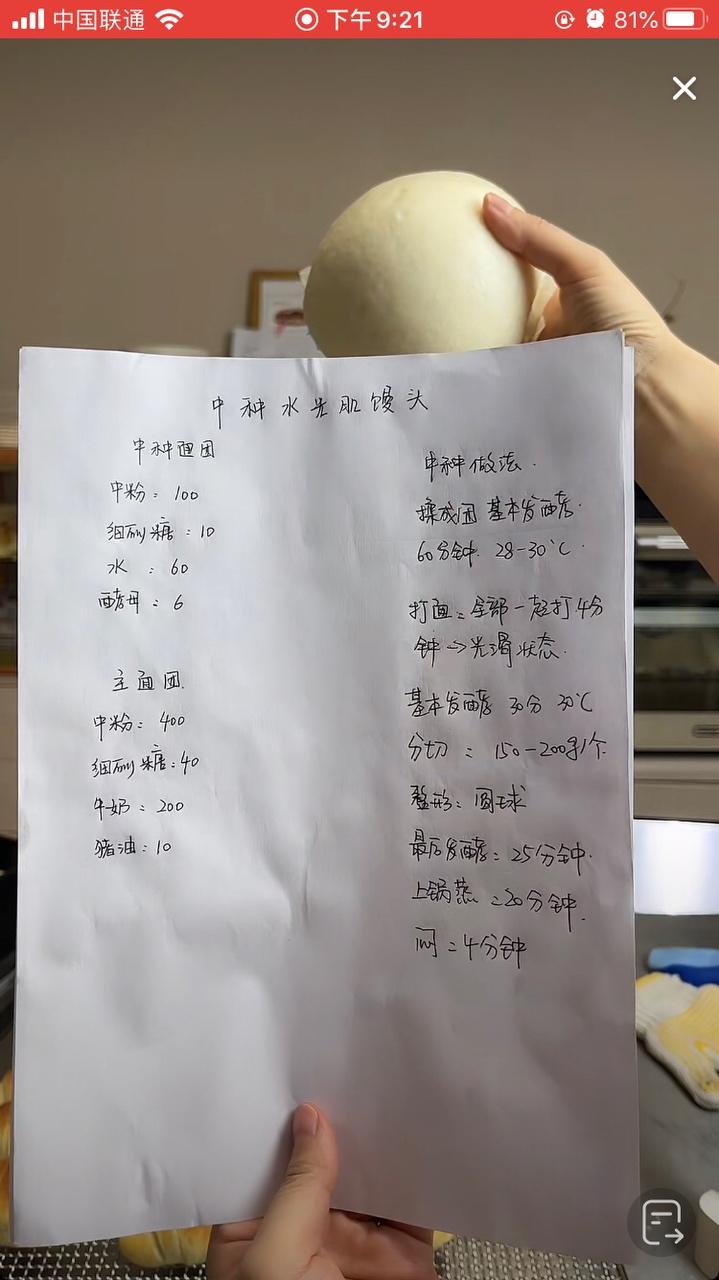 中国联通
下午9:21
81%
中种水光肌馒头
中种面团
中粉：100
细砂糖：10
水：60
酵母：6
主面团.
中粉：400
细砂糖：40
牛奶：200
猪油：10
中种做法.
揉成团 基本发酵.
60分钟. 28-30℃.
打面：全部一起打4分
钟→光滑状态.
基本发酵 30分 30℃
分切：150-200g/个.
整形：圆球
最后发酵：25分钟.
上锅蒸：20分钟.
闷：4分钟